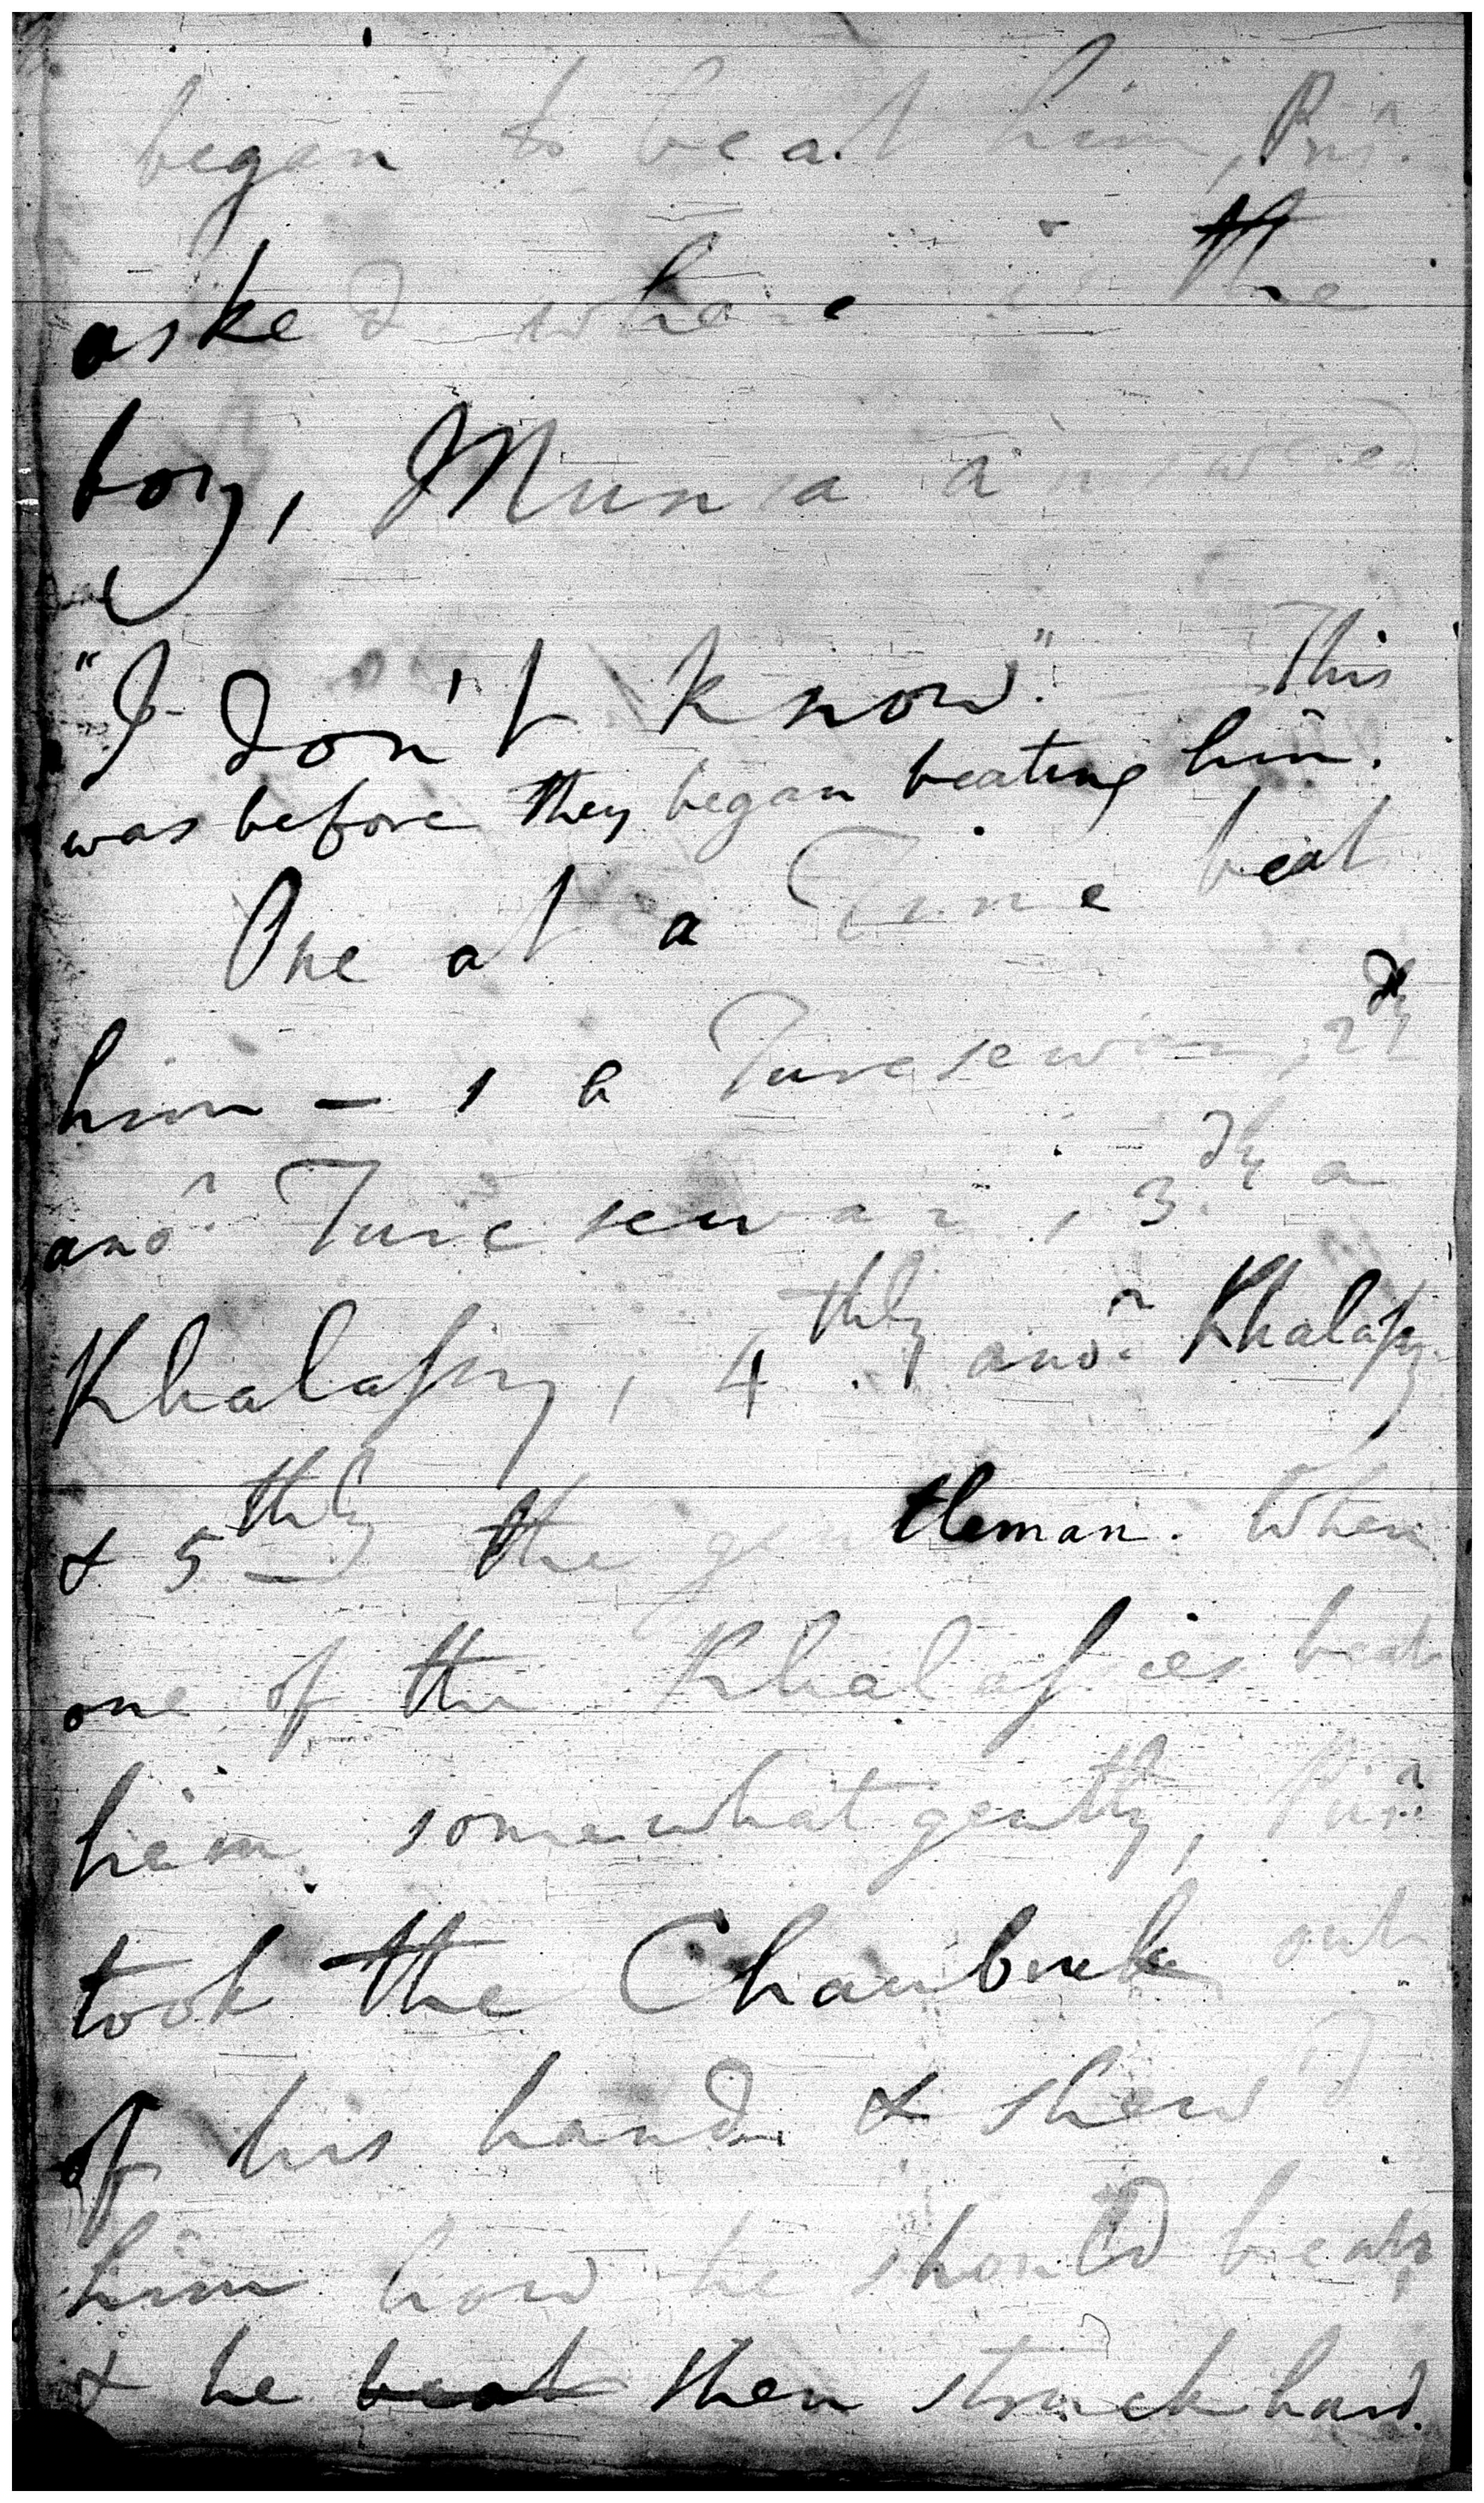 began to beat him, Pris.r
asked where is the
boy, Munsa answered
"I don't know." This
was before they began beating him.
One at a Time beat
him - 1 a Turesewar, 2dly
ano.r Turesewar, 3dly a
Khalassy, 4thly ano.r Khalassy
& 5thly the gentleman. When
one of the Khalassies beat
him somewhat gently, Pris.r
took the Chaubuck out
of his hand & shew'd
him how he should beat,
& he beat then struck hard.